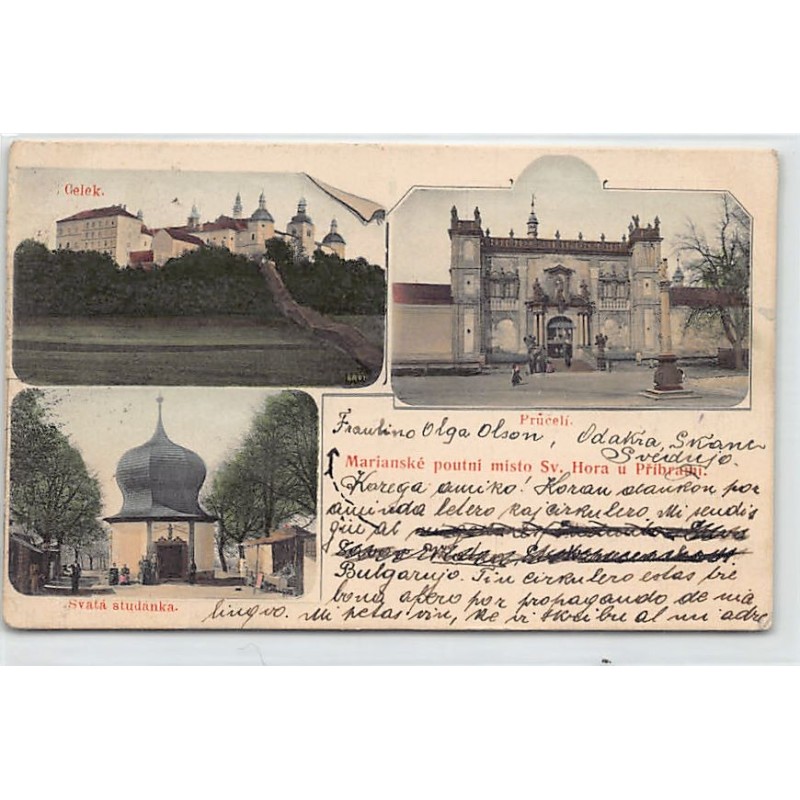 Celek.
Průčelí.
Fraulino Olga Olson, Odakra, Skane
Svedujo.
Marianské poutní místo Sv. Hora u Příbrami.
Korega amiko! Koran dankon por
am letero kaj cirkulero Mi sendis
ĝin al
Bulgarujo. Tiu cirkulero estas tre
bona afero por propagando de nia
Svatá studánka.
lingvo. Mi petas vin, ke vi skribu al mi adre